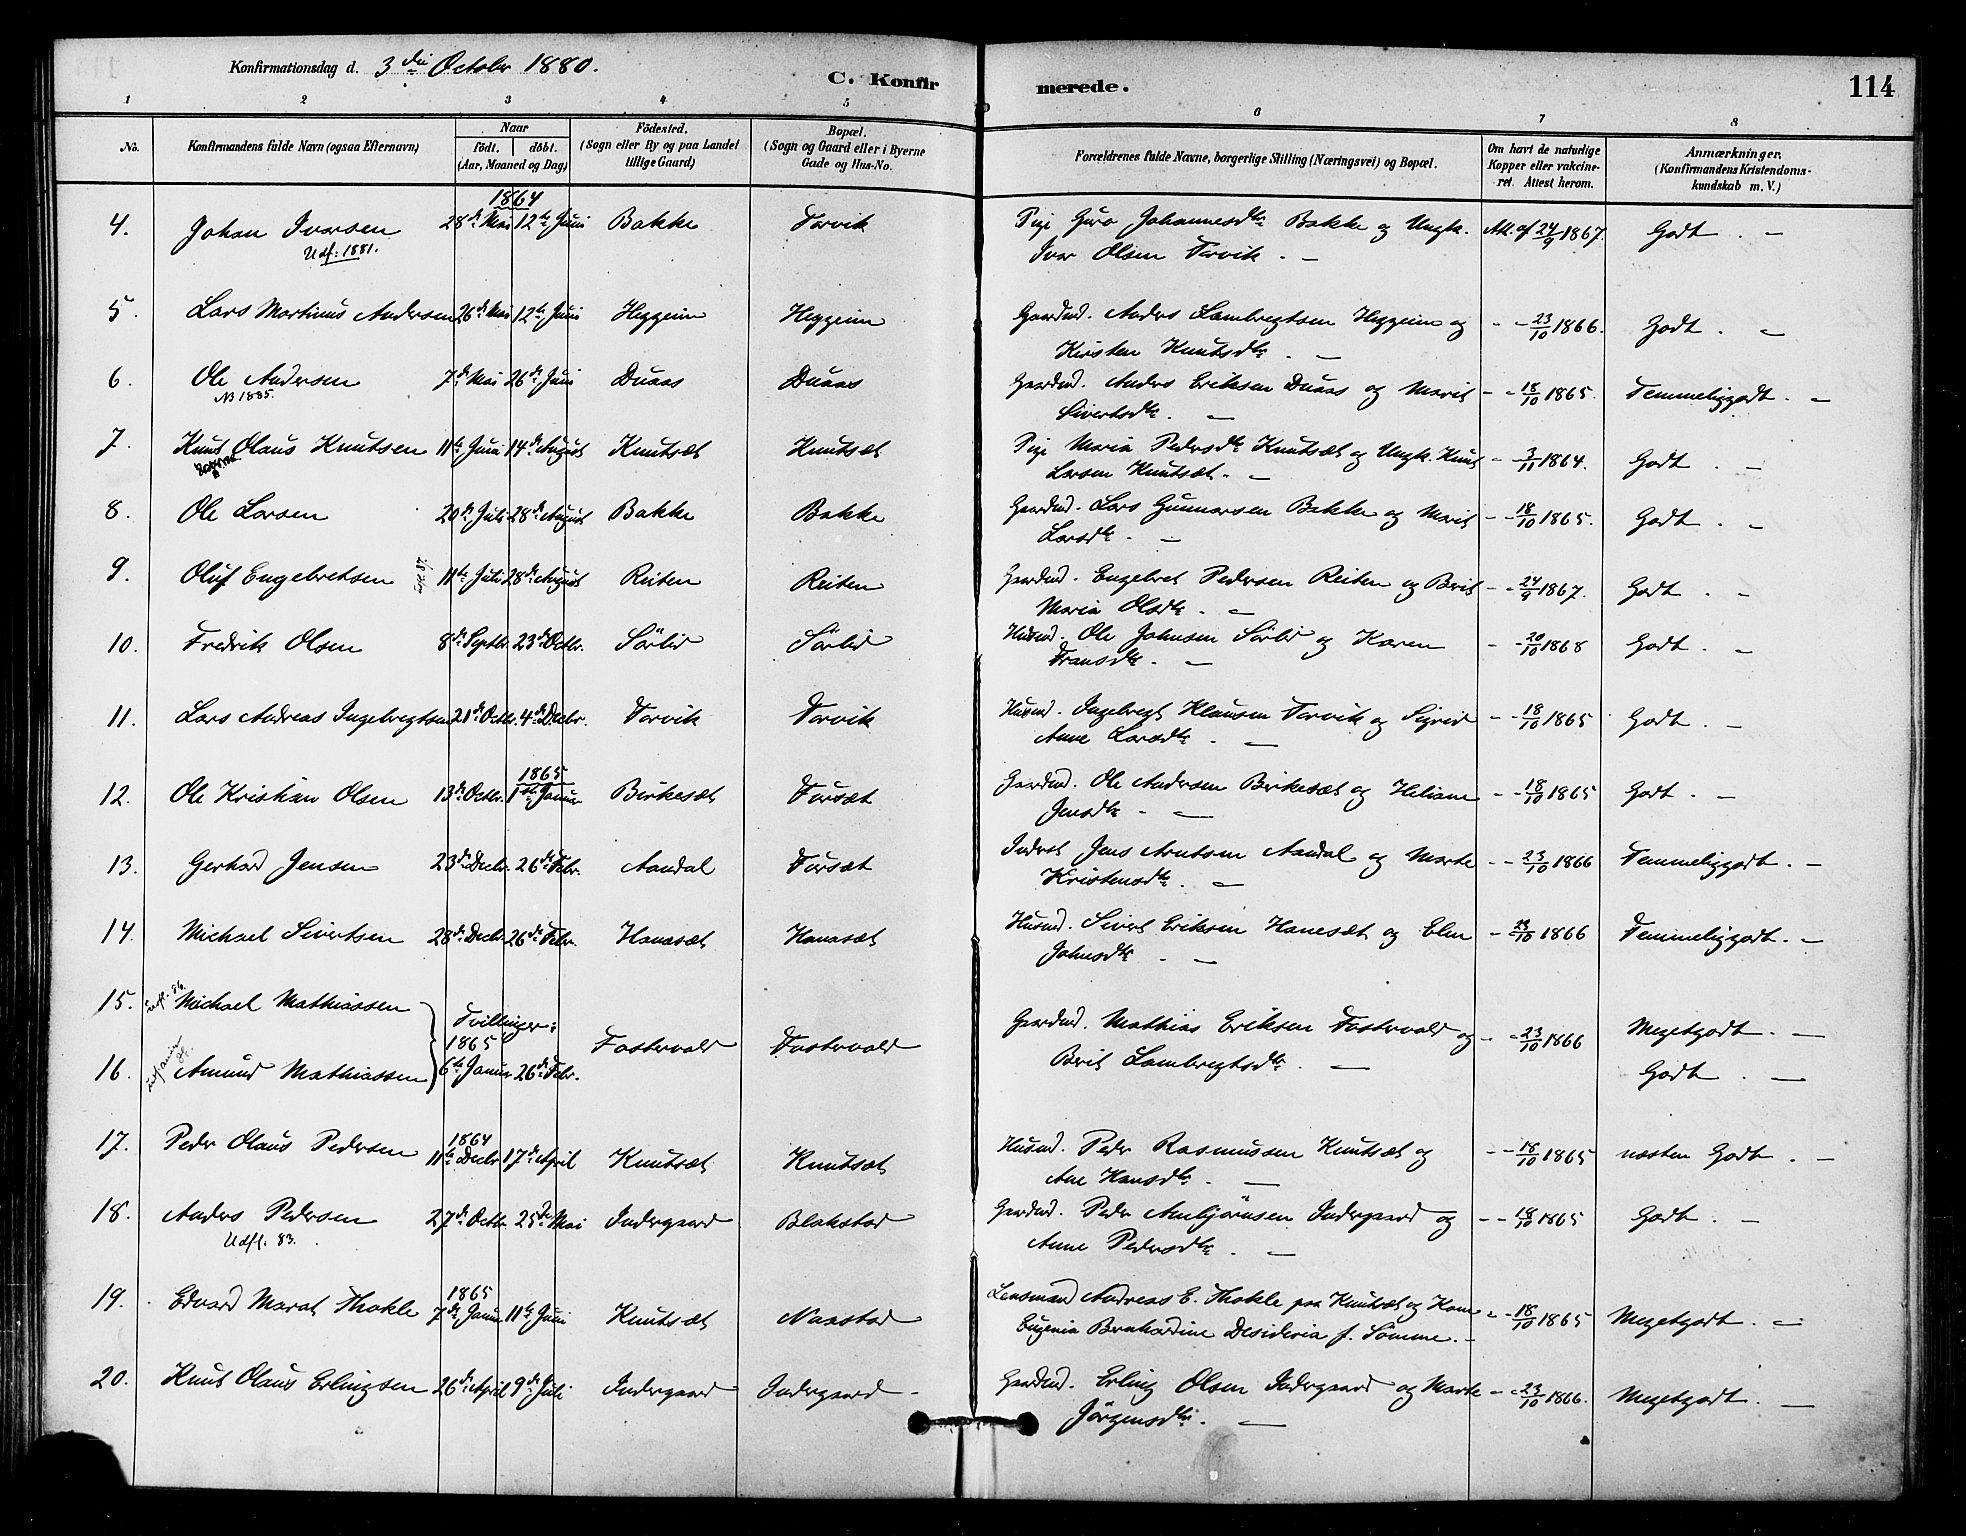 Konfirmationsdag d. 3die October 1880.
C. Konfirmerede.
114
1 2 3 4 5 6 7 8
No.
Konfirmandens fulde Navn (ogsaa Efternavn)
Naar
födt. döbt.
(Aar, Maaned og Dag)
Födested.
(Sogn eller By og paa Landet
tillige Gaard)
Bopæl.
(Sogn og Gaard eller i Byerne
Gade og Hus-No.
Forældrenes fulde Navne, borgerlige Stilling (Næringsvei) og Bopæl.
Om havt de naturlige
Kopper eller vakcine-
ret. Attest herom.
Anmærkninger.
(Konfirmandens Kristendoms-
kundskab m. V.)
1864
4. Johan Iversen 28de Mai 12te Juni Bakke Torvik Pige Guro Johannesdtr Bakke og Ungk. Att. af 24/9 1867. Godt. —
Udf: 1881. Iver Olsen Torvik. —
5. Lars Martinus Andersen 26de Mai 12te Juni Heggeim Heggeim Gaardmd. Anders Lambregtsen Heggeim og - - 23/10 1866. Godt. —
Kirsten Knutsdtr. —
6. Ole Andersen 7de Mai 26de Juni Duaas Duaas Gaardmd. Anders Eriksen Duaas og Marit - - 18/10 1865. Temmeliggodt. —
NB 1885. Sivertsdtr. —
7. Knut Olaus Knutsen 11te Juni 14de August Knutsæt Knutsæt Pige Maria Pedersdtr Knutsæt og Ungk. Knut - - 3/11 1864. Godt. —
Larsen Knutsæt. —
8. Ole Larsen 20de Juli 28de August Bakke Bakke Gaardmd. Lars Gunnarsen Bakke og Marit - - 18/10 1865. Godt. —
Larsdtr. —
9. Oluf Engebretsen 11te Juli 28de August Reiten Reiten Gaardmd. Engebret Pedersen Reiten og Brit - - 24/9 1867. Godt. —
Maria Olsdtr. —
10. Fredrik Olsen 8de Septbr. 23de Octbr. Sörlid Sörlid Husmd. Ole Johnsen Sörlid og Karen - - 20/10 1868 Godt. —
Fransdtr. —
11. Lars Andreas Ingebregtsen 21de Octbr. 4de Decbr. Torvik Torvik Husmd. Ingebregt Klausen Torvik og Sigrid - - 18/10 1865 Godt. —
Anne Larsdtr. —
1865
12. Ole Kristian Olsen 13de Octbr. 1ste Januar Birkesæt Fursæt Gaardmd. Ole Andersen Birkesæt og Heliane - - 18/10 1865 Godt. —
Jensdtr. —
13. Gerhard Jensen 23de Decbr. 26de Febr. Aandal Fursæt Inderst Jens Arntsen Aandal og Marte - - 23/10 1866 Temmeliggodt. —
Kristensdtr. —
14. Michael Sivertsen 28de Decbr. 26de Febr. Hanasæt Hanasæt Husmd. Sivert Eriksen Hanesæt og Elen - 23/10 1866 Temmeliggodt. —
Johnsdtr. —
15. Michael Mathiassen Tvillinger: Fostervold Fostervold Gaardmd. Mathias Eriksen Fostervold og - - 23/10 1866 Megetgodt. —
1865
16. Amund Mathiassen 6te Januar 26de Febr. Brit Lambregtsdtr. — Godt. —
1864
17. Peder Olaus Pedersen 11te Decbr. 17de April Knutsæt Knutsæt Husmd. Peder Rasmussen Knutsæt og - - 18/10 1865 næsten Godt. —
Ane Hansdtr. —
18. Anders Pedersen 27de Octbr. 25de Mai Indergaard Blakstad Gaardmd. Peder Arnbjörnsen Indergaard og - - 18/10 1865 Godt. —
Udfl: 83. Anne Pedersdtr. —
1865
19. Edvard Marat Thokle 7de Januar 11te Juni Knutsæt Naastad Lensmand Andreas E. Thokle paa Knutsæt og Kone - - 18/10 1865 Megetgodt. —
Eugenia Bernhardine Desideria f. Sömme. —
20. Knut Olaus Erlingsen 26de April 9de Juli Indergaard Indergaard Gaardmd. Erling Olsen Indergaard og Marte - - 23/10 1866. Megetgodt. —
Jörgensdtr. —